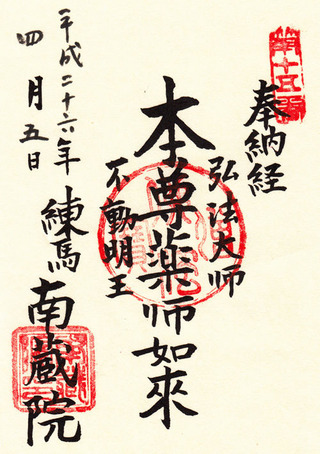 第十五番
奉納経
弘法大師
本尊薬師如來
不動明王
平成二十六年
四月五日
練馬
南蔵院